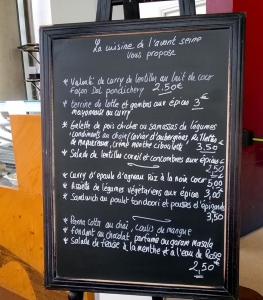 La cuisine de l'avant seine
Vous propose
* Velouté de curry de lentilles au lait de coco
Façon Dal pondichery 2.50€
* terrine de lotte et gambas aux épices 3€
mayonnaise au curry
* Galette de pois chiches ou samossas de légumes
condiments au choix (caviar d'aubergines, rillettes
de maquereaux, crème menthe ciboulette 3,50€
* Salade de lentilles corail et concombres aux épices
2,50
* Curry d'épaule d'agneau Riz à la noix coco
5,00
* Assiette de légumes végétariens aux épices 3,00€
* Sandwich au poulet tandoori et pousses d'épinards
3,50
* Panna cotta au chaï, coulis de mangue
* Fondant au chocolat parfumé au garam masala
* Salade de fraise à la menthe et à l'eau de Rose
2,50€